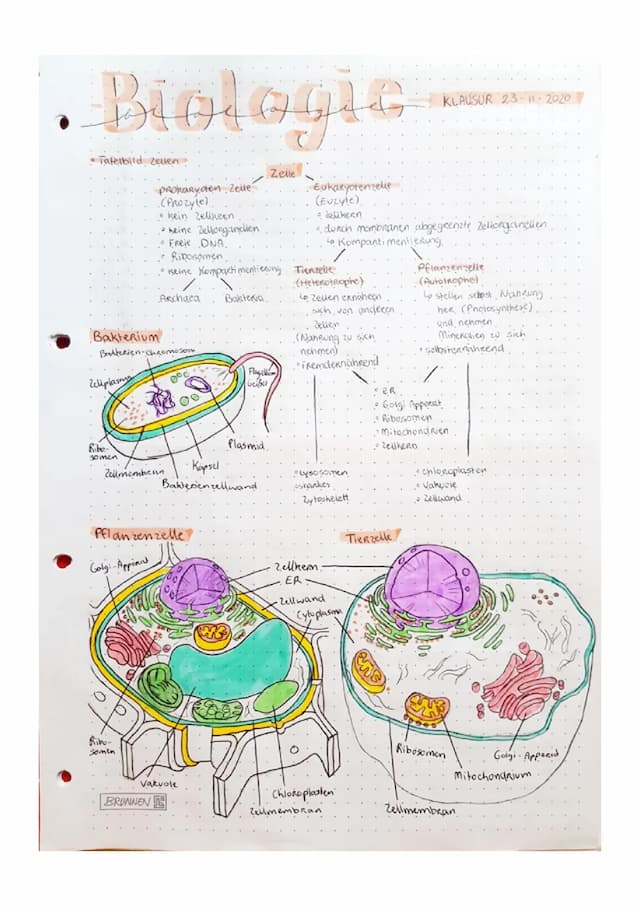 Biologie
KLAUSUR 23-11-2020
• Tafelbild Zellen
Zelle
prokaryoten Zelle
(Prozyte)
• kein Zellkern
• keine Zellorganellen
• Freie DNA
• Ribosomen
• keine Kompartimentierung
Archaea
Bakteria
Eukaryotenzelle
(Euzyte)
• Zellkern
• durch membranen abgegrenzte Zellorganellen
↳ Kompartimentierung
Tierzelle
(Heterotrophe)
↳ Zellen ernähren
sich von anderen
Zellen
(Nahrung zu sich
nehmen)
• fremdernährend
Pflanzenzelle
(Autotrophe)
↳ stellen selbst Nahrung
her (Photosynthese)
und nehmen
Mineralien zu sich
• selbsternährend
• ER
• Golgi Apparat
• Ribosomen
• Mitochondrien
• Zellkern
• Lysosomen
• starkes
Zytoskelett
• Chloroplasten
• Vakuole
• Zellwand
Bakterium
Bakterien-chromosom
Zellplasma
Flagellum
Geißel
Ribo-
somen
Zellmembran
Kapsel
Plasmid
Bakterienzellwand
Pflanzenzelle
Golgi-Apparat
Zellkern
ER
Zellwand
Cytoplasma
Ribo-
somen
Vakuole
Chloroplasten
Zellmembran
BRUNNEN
Tierzelle
Ribosomen
Golgi-Apparat
Mitochondrium
Zellmembran